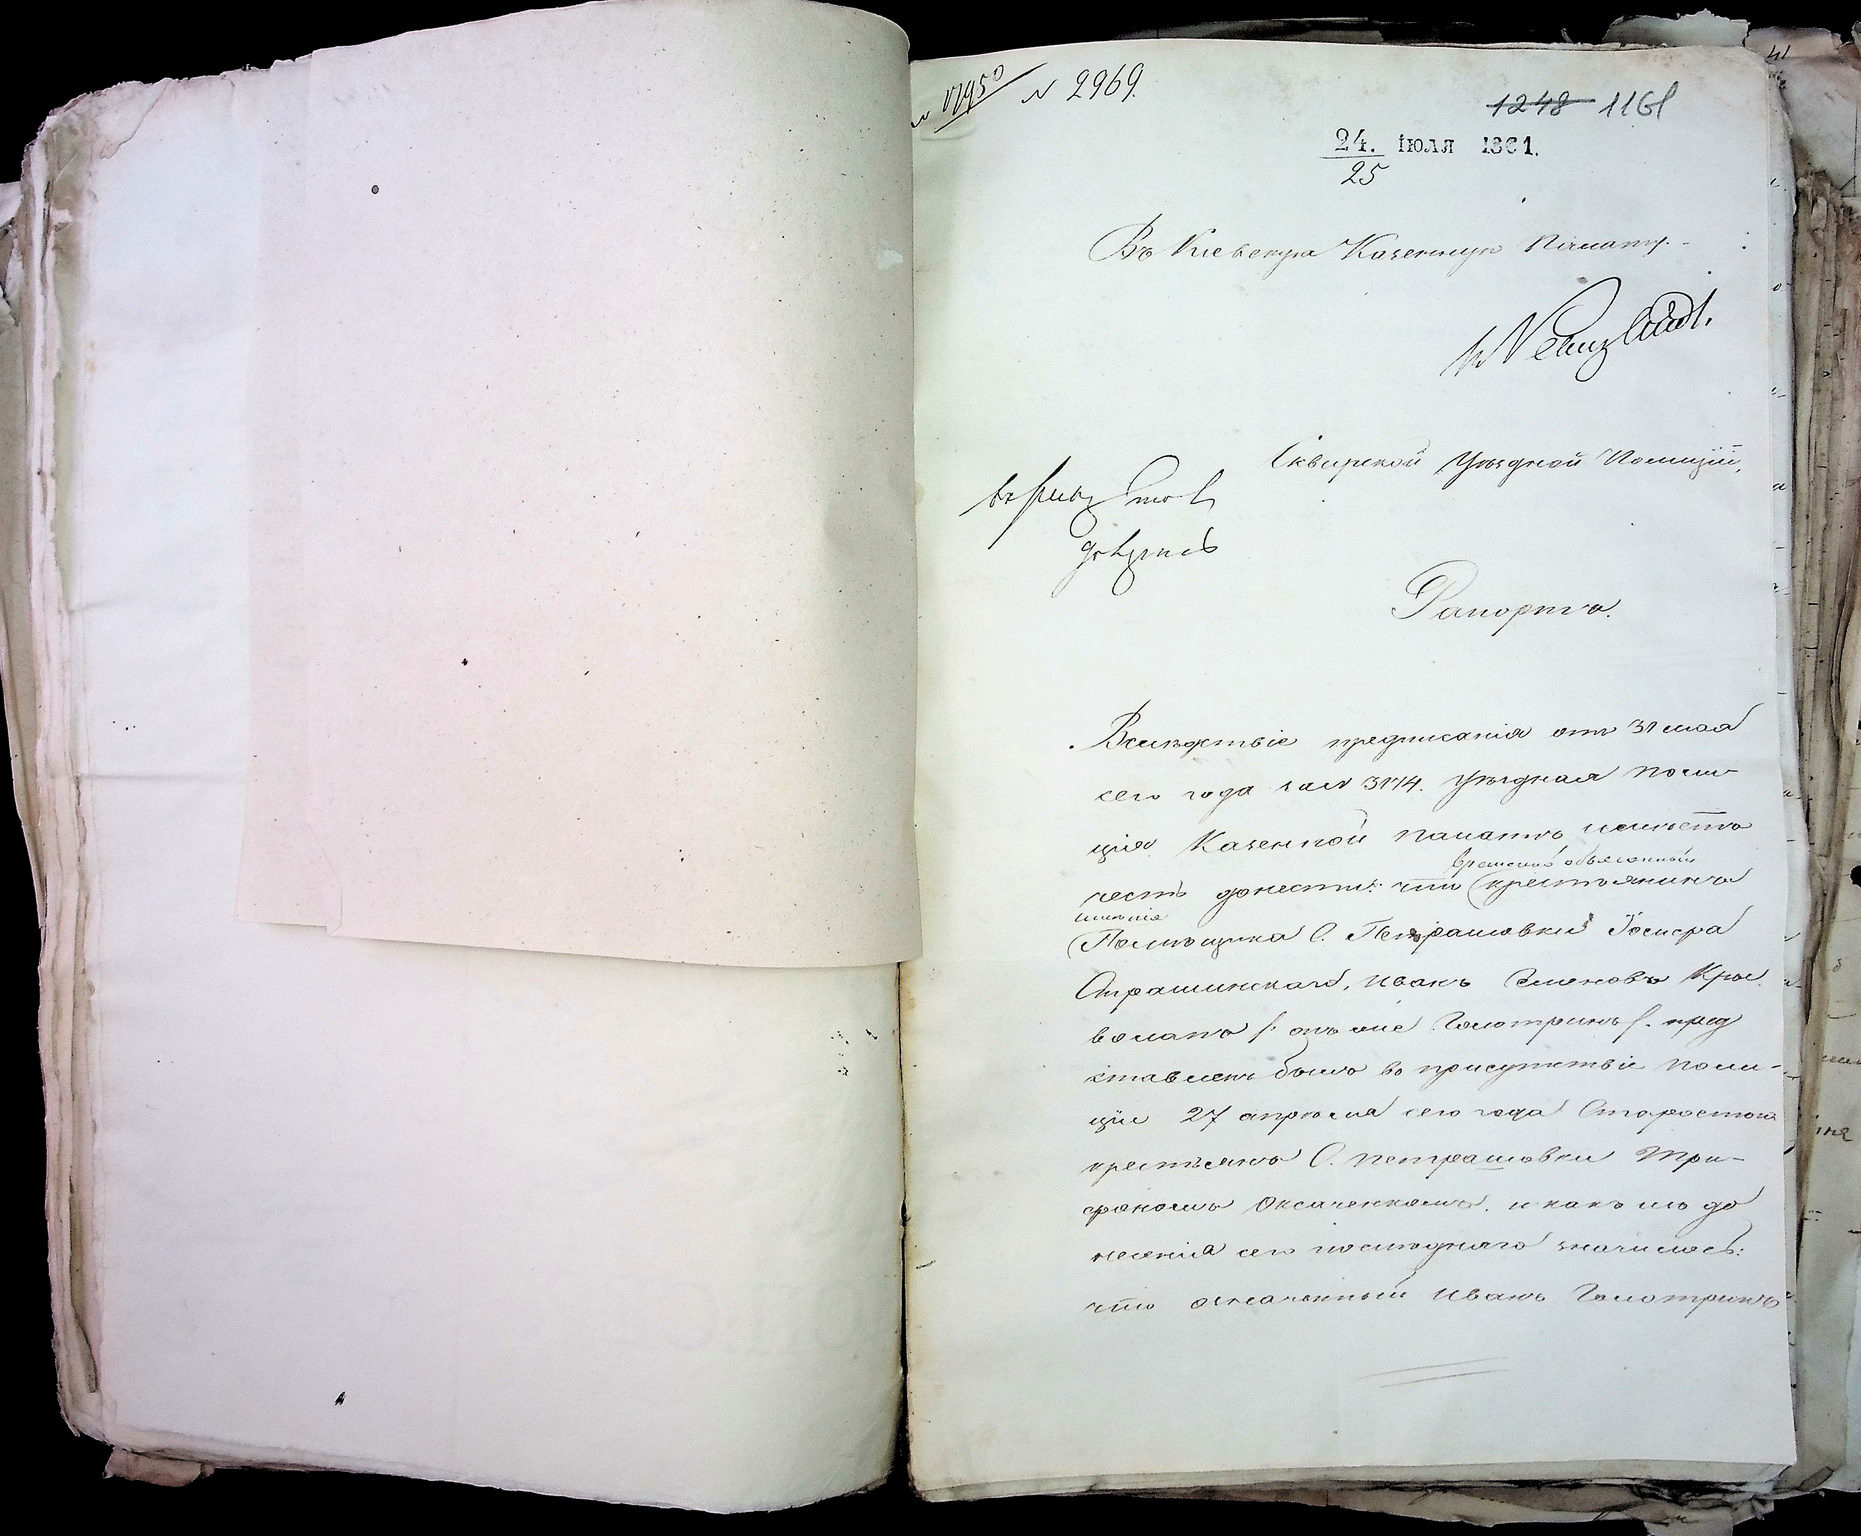 № 2969.
1248 1161
24. ІЮЛЯ 1861.
25
Въ Кіевскую Казенную Палату.
Сквирской Уѣздной Полиціи,
Рапортъ.
Вслѣдствіе предписанія отъ 31 мая
сего года за № 3174. Уѣздная Поли-
ція Казенной Палатѣ имѣетъ
временно обязанный
честь донести: что крестьянинъ
имѣнія
Помѣщика С. Петрашовки Іосифа
Страшинскаго, Иванъ Семеновъ Кри
воланъ /: онъ же Голотринъ /: пред
ставленъ былъ въ присутствіе Поли-
ціи 27 апрѣля сего года Старостою
крестьянъ С. Петрашовки Три-
фономъ Оксаченкомъ, и какъ изъ до
несенія сего послѣдняго значилось:
что означенный Иванъ Голотринъ